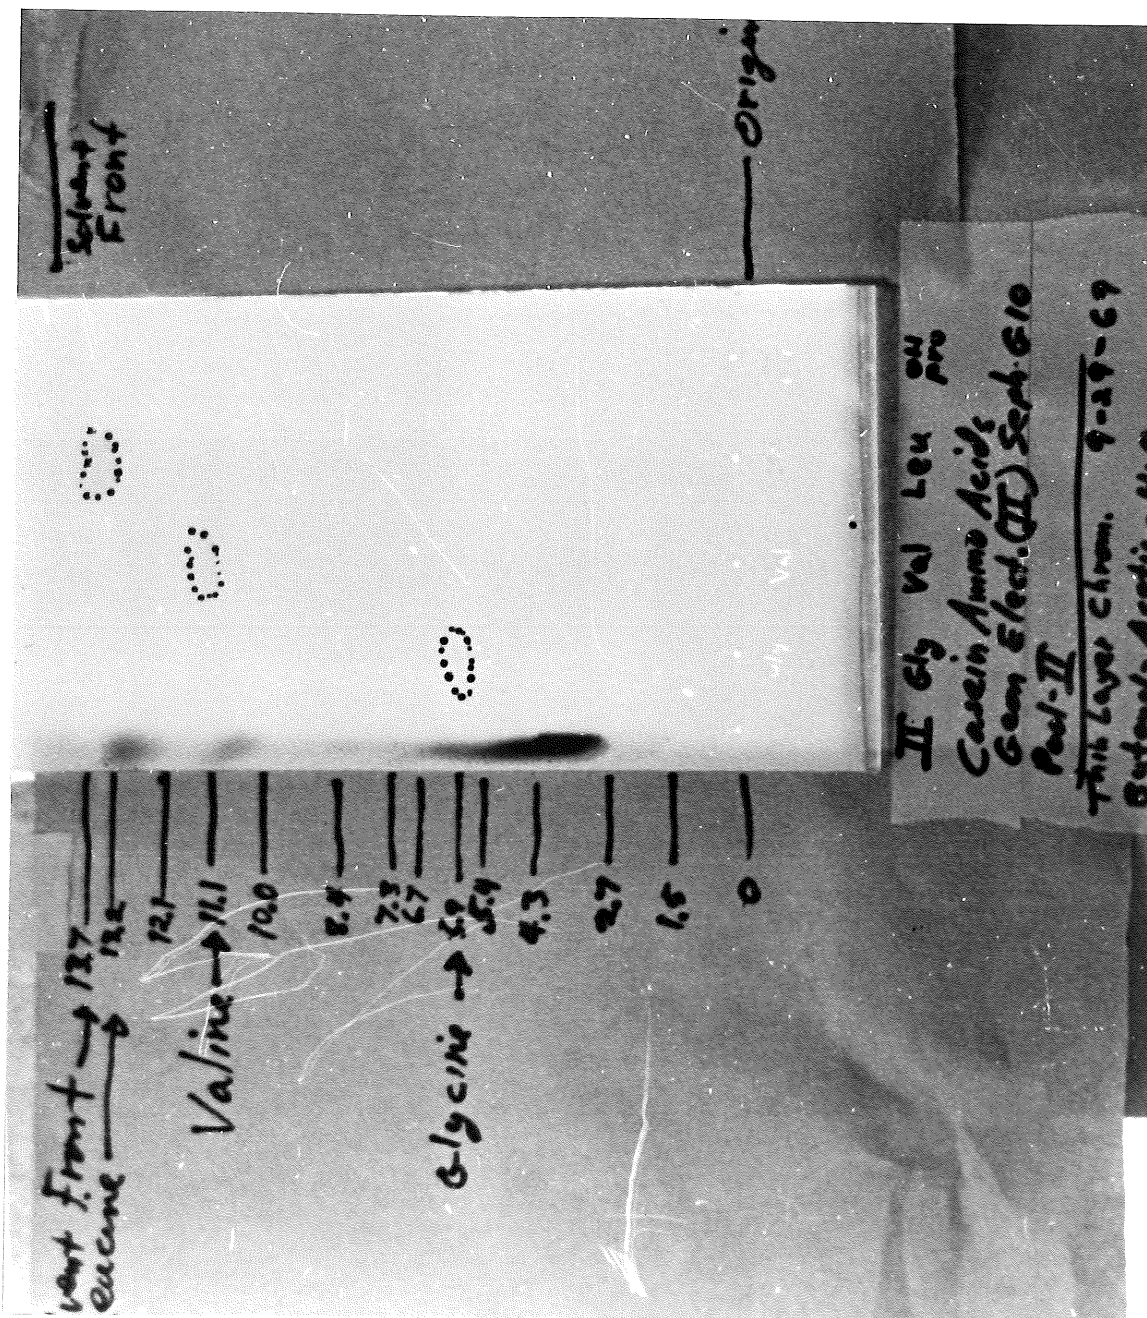 Solvent
Front
Origin
Front → 13.7
13.2
12.1
Valine → 11.1
10.0
8.4
7.3
6.7
Glycine → 5.9
5.4
4.3
2.9
1.5
0
Val
II Gly Val Leu OH
pro
Casein Amino Acids
Gem Elect. (II) Seph. G10
Pool-II
Thin Layer Chrom. 9-29-69